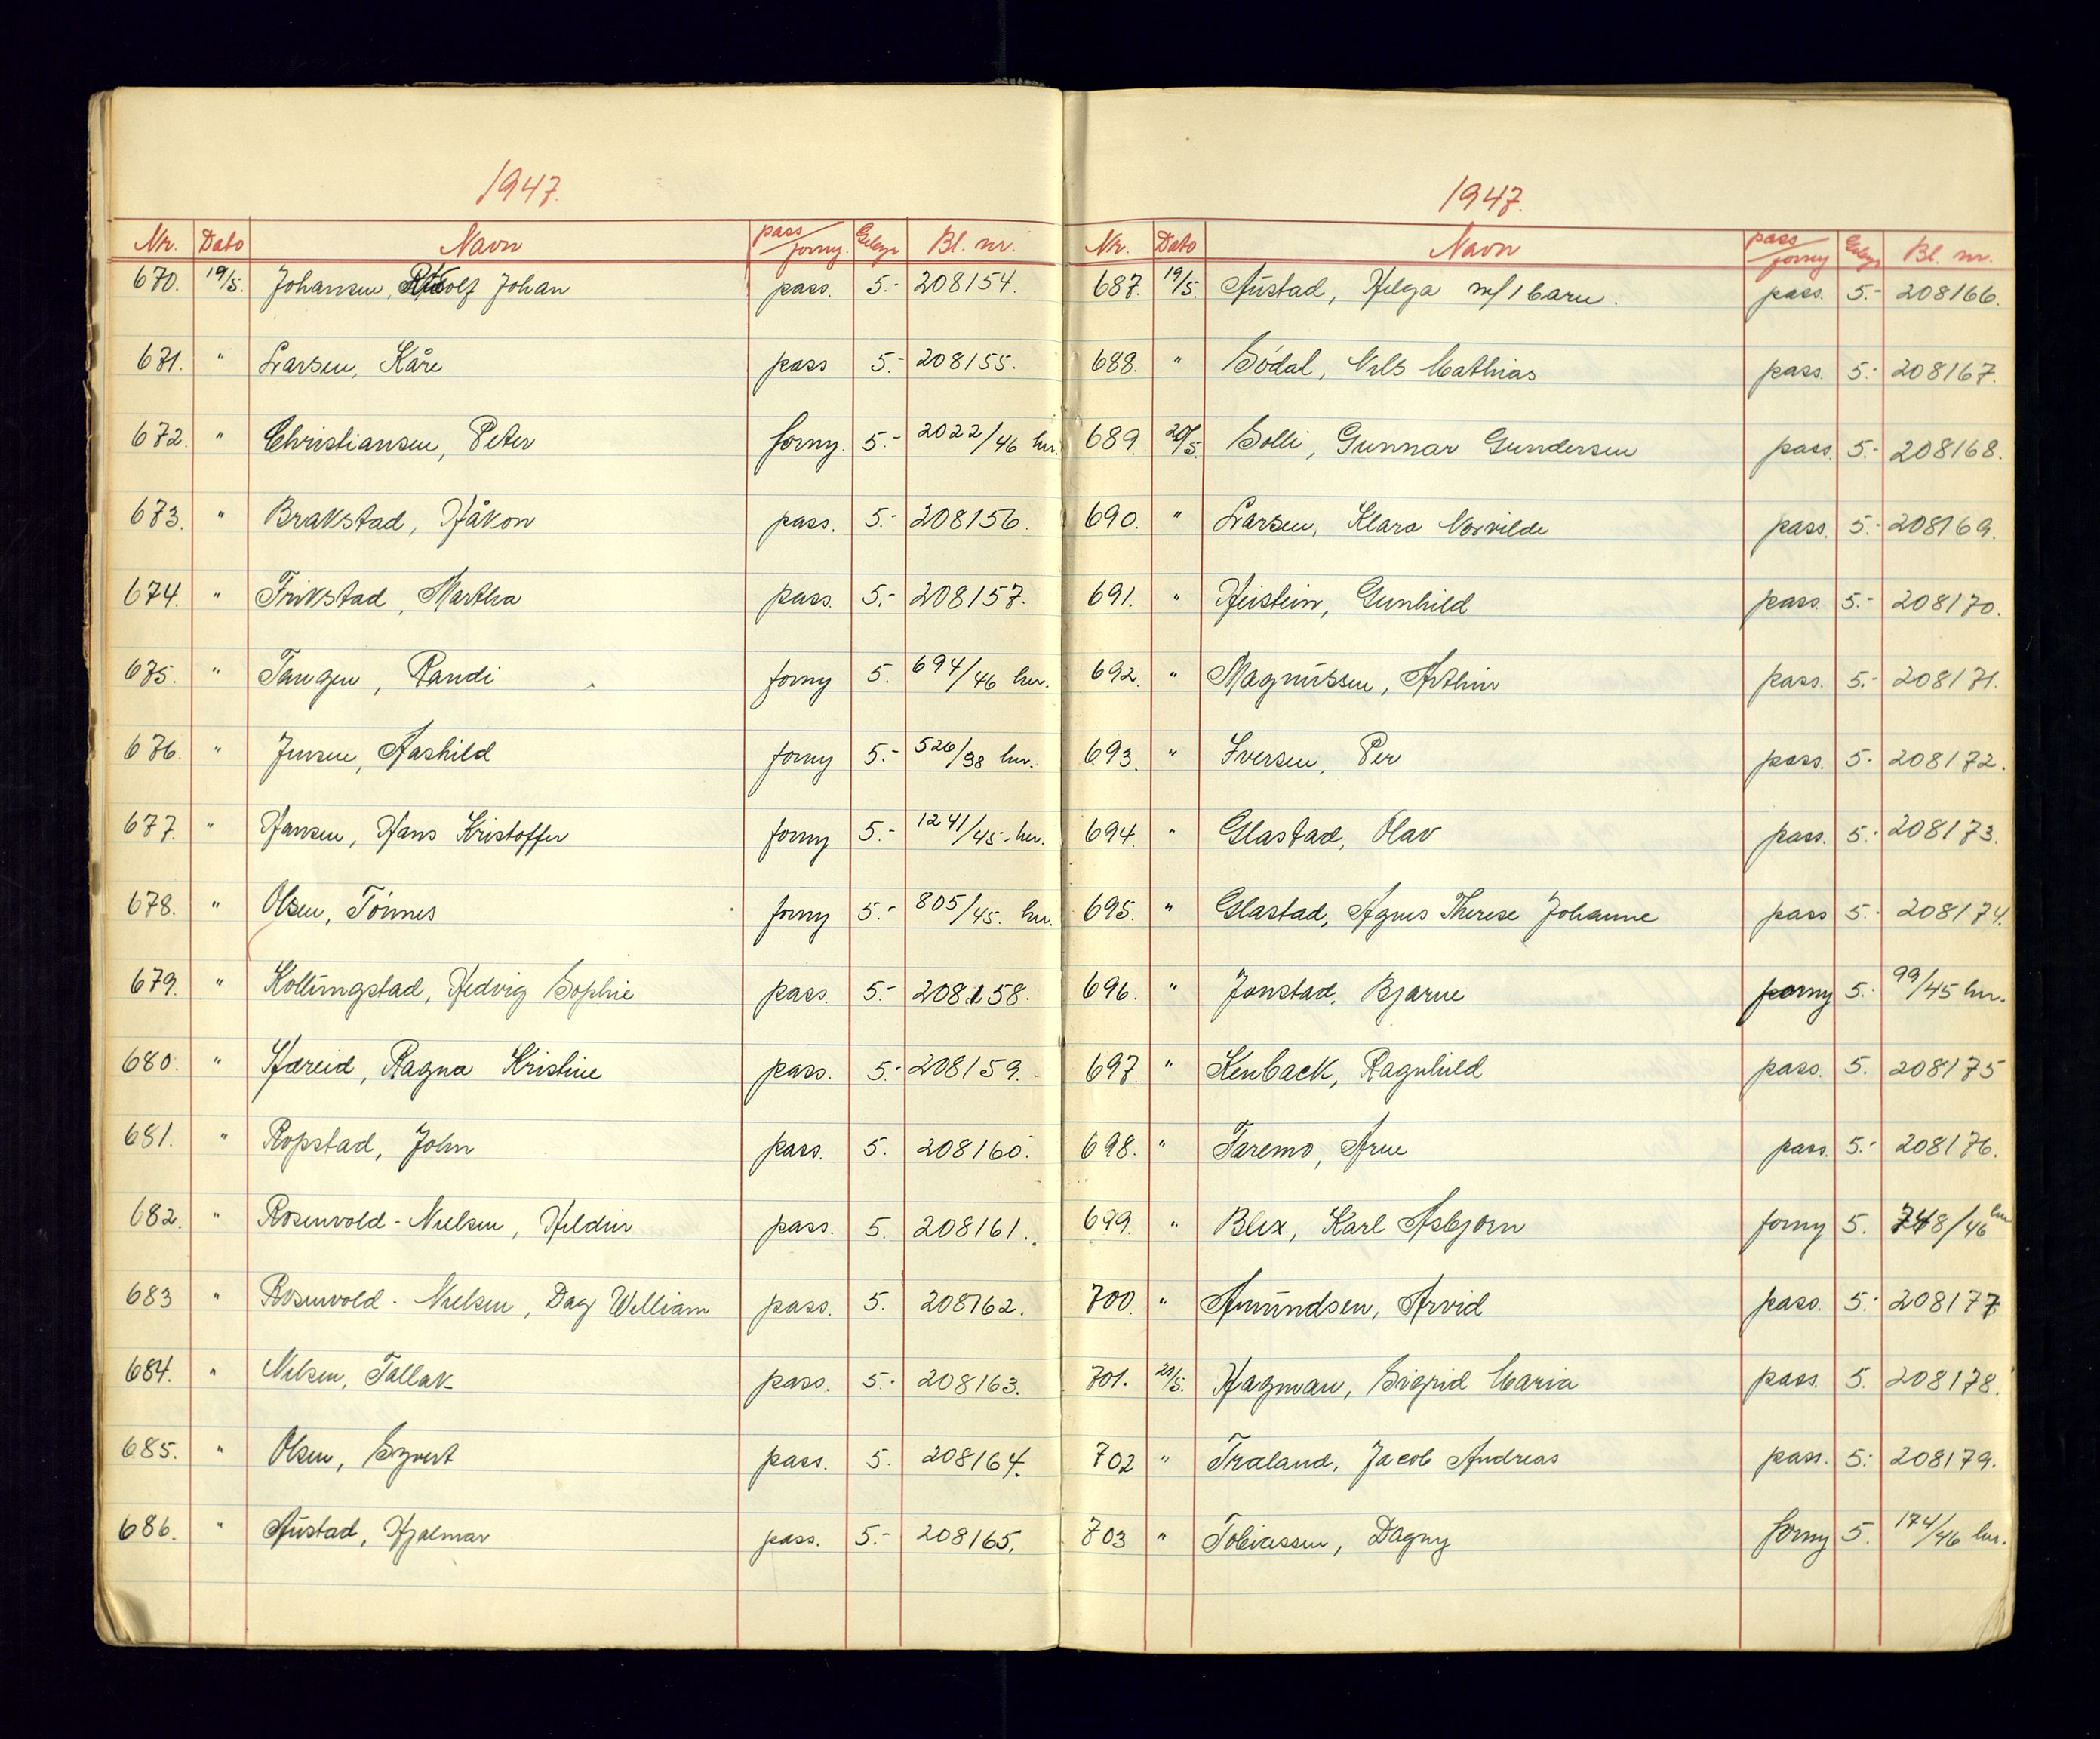 1947.
Nr. Dato Navn pass/forny. Gebyr Bl. nr.
670. 19/5. Johansen, Johan pass. 5.- 208154.
671. " Larsen, Kåre pass 5.- 208155.
672. " Christiansen, Peter forny. 5.- 2022/46 hr.
673. " Brakstad, Håkon pass. 5.- 208156.
674. " Frikstad, Martha pass. 5.- 208157.
675. " Tangen, Randi forny 5. 694/46 hr.
676. " Jensen, Aashild forny 5.- 526/38 hr.
677. " Hansen, Hans Kristoffer forny 5.- 1241/45 hr.
678. " Olsen, Tönnes forny 5.- 805/45. hr.
679. " Kollungstad, Hedvig Sophie pass. 5.- 208158.
680. " Hareid, Ragna Kristine pass. 5.- 208159.
681. " Ropstad, John pass. 5. 208160.
682. " Rosenvold-Nielsen, pass. 5. 208161.
683 " Rosenvold-Nielsen, Dag William pass. 5. 208162.
684. " Nilsen, Tallak pass. 5.- 208163.
685. " Olsen, Syvert pass. 5. 208164.
686. " Austad, Hjalmar pass. 5.- 208165.
1947.
Nr. Dato Navn pass/forny Gebyr Bl. nr.
687. 19/5. Austad, Helga m/1 barn. pass. 5.- 208166.
688. " Södal, Nils Mathias pass. 5.- 208167.
689. 20/5. Solli, Gunnar Gundersen pass. 5.- 208168.
690. " Larsen, Klara pass. 5.- 208169.
691. " Heistein, Gunhild pass. 5.- 208170.
692. " Magnussen, Arthur pass. 5.- 208171.
693. " Iversen, Per pass. 5- 208172.
694. " Glastad, Olav pass. 5.- 208173.
695. " Glastad, Agnes Therese Johanne pass 5.- 208174.
696. " Jonstad, Bjarne forny 5.- 99/45 hr.
697. " Kenback, Ragnhild pass. 5. 208175
698. " Faremo, Arne pass. 5.- 208176.
699. " Blix, Karl Asbjorn forny 5. 748/46 hr
700. " Amundsen, Arvid pass. 5.- 208177
701. 20/5. Hagman, Sigrid Maria pass. 5. 208178.
702 " Træland, Jacob Andreas pass. 5.- 208179.
703 " Tobiassen, Dagny forny 5. 174/46 hr.